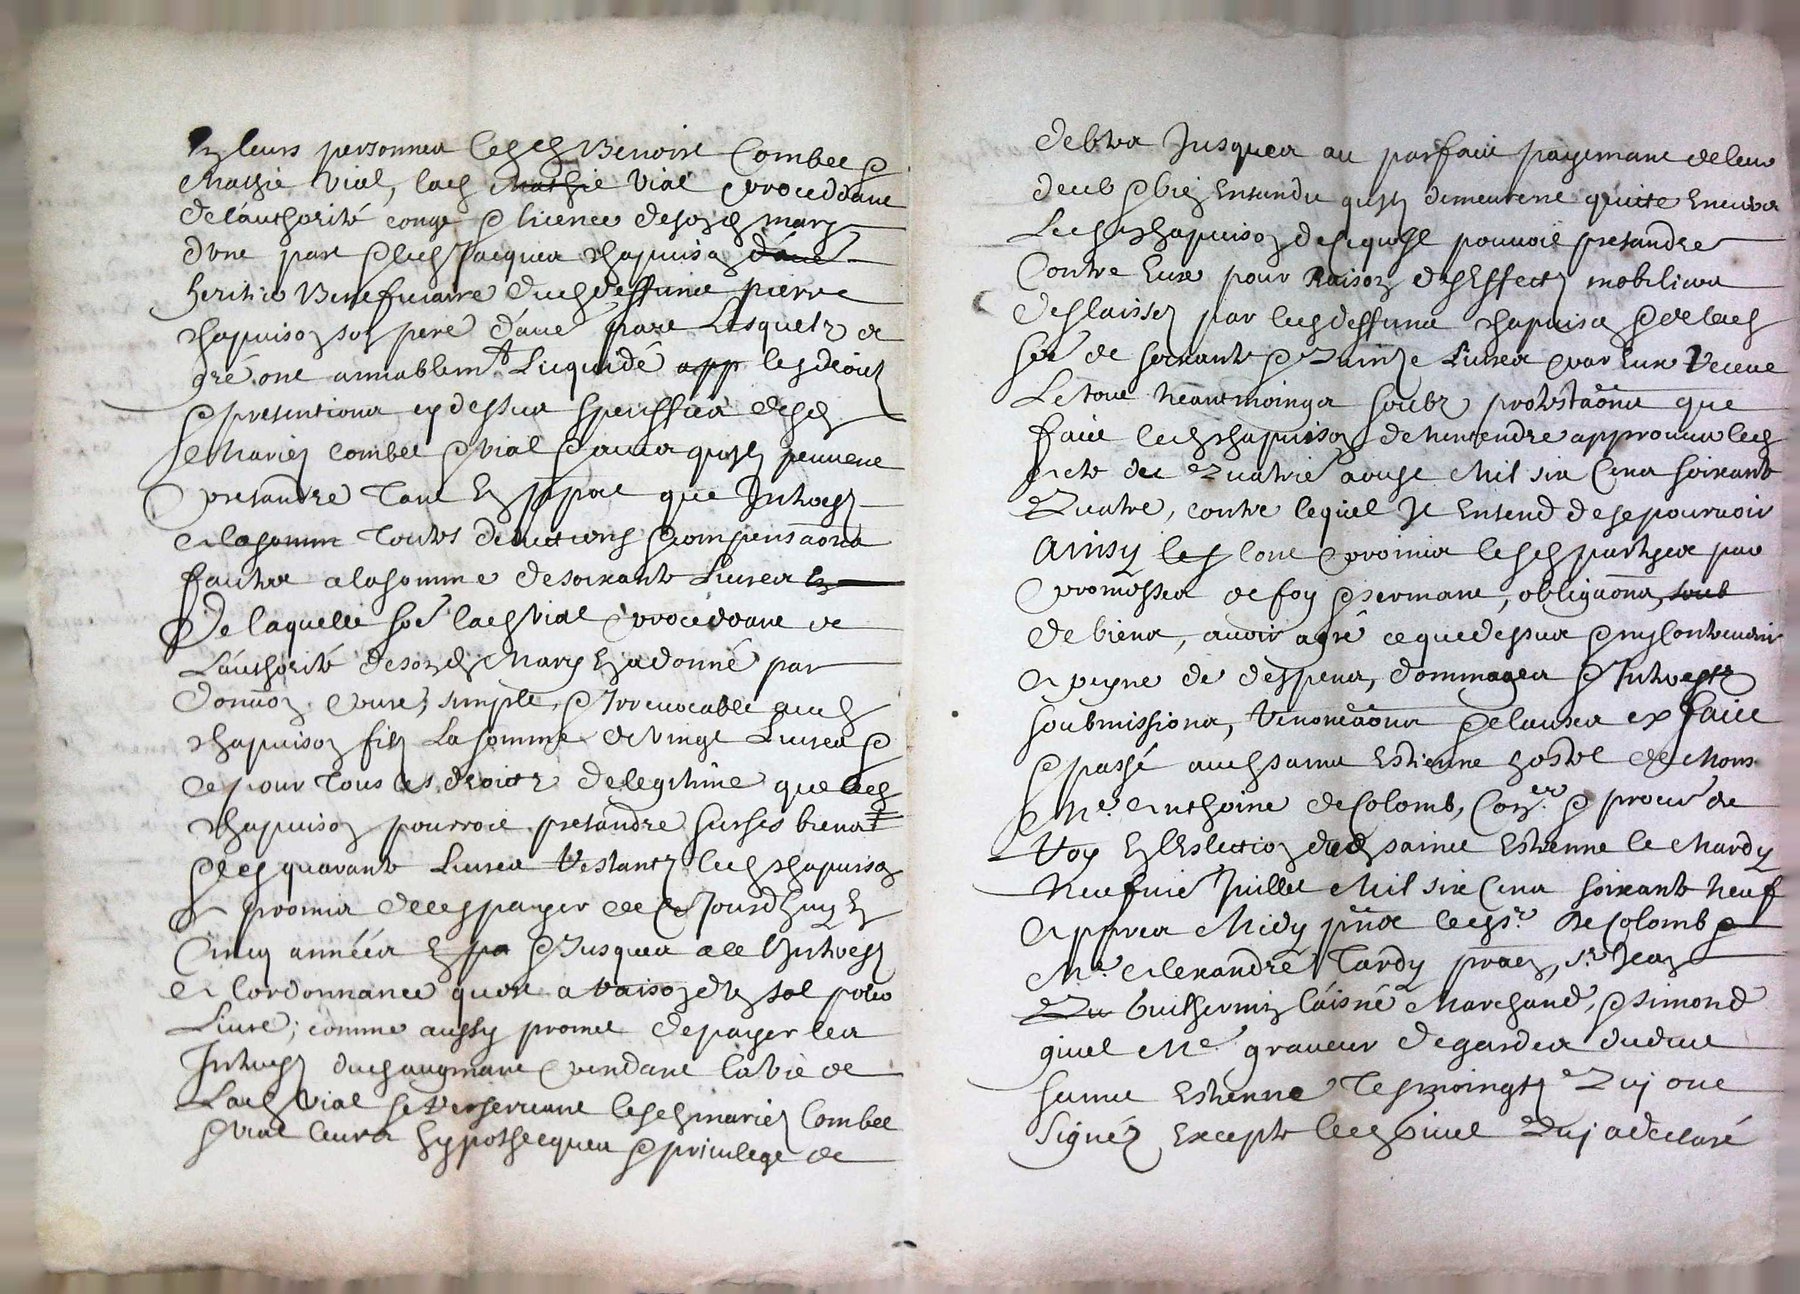 En leurs personnes lesd Benoist Combet &
Mathie Vial, lad Mathie Vial proceddant
de l'authorité congé & licence de son d mary
d'une part & led Jacques Chapuison d'aue
heritier Beneficiaire dud deffunct pierre
Chapuison son pere d'autre part Lesquelz de
gré ont amiablemt Liquidé app les droictz
& pretentions cy dessus speciffiés desd
Mariez Combet & Vial & autres quilz peuvent
pretandre Tant En ppal que Intherestz
a la somm Toutes deductions & compensaõns
faictes a la somme de soixante Livres En
De laquelle soe lad Vial proceddant de
L'authorité de son d Mary En a donné par
donnaõn pure, simple, & Irrevocable aud
Chapuison filz La somme de vingt Livres &
ce pour Tous les droictz de legitime que led
Chapuison pourroit pretandre sur ses biens
& les quarante Livres Restantz led Chapuison
a promis de les payer de ce Jourdhuy En
Cinq années En pa & Jusques a ce l'Intherestz
a l'ordonnance quost a raison d'un sol pour
Livre; comme aussy promet de payer les
Intherestz dud augmant pendant la vie de
Lad Vial se reservant lesd mariez Combet
& Vial leurs hypotheques & privilege de
debtes Jusques au parfaict payemant de leur
deub & bien Entendu quilz demeurent quitte Envers
Led Chapuison de ce quil pouvoit pretandre
Contre Eux pour Raison des Effectz mobiliers
deslaissez par led deffunct Chapuison & de lad
soe de soixante & Quinze Livres par Eux Receue
Le tout neantmoingtz soubz protestaõns que
faict led Chapuison de n'entendre approuver led
acte du Quatrie aoust Mil six Cens soixante
Quatre, contre lequel Il Entend de se pourvoir
Ainsy les l'ont promis lesd parties par
promesses de foy & sermant, obligaõns, soub
de biens, avoir agré ce que dessus & ny contrevenir
a peyne de despens, dommages & Intherestz
soubmissions, renonciaõns & clauses ex faict
& passé aud saint Estienne hostel de Mons
Me Anthoine de Colomb, Coner & procur de
Roy En l'Eslection dud saint Estienne le Mardy
Neufvie Juillet Mil six Cens soixante neuf
appres Midy pñt led sr De Colomb &
Me Alexandre Tardy pratn, sr Jean
Qu Guilhermin l'aisné Marchand, & simond
givel Me graveur de gardes dudict
saint Estienne Tesmoingtz Qui ont
signéz Excepte led Givel Qui a declaré